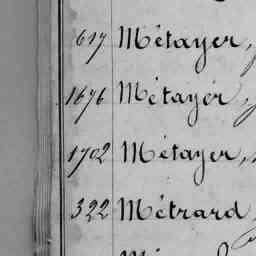 617 Métayer,
1676 Métayer,
1702 Métayer,
322 Métrard,